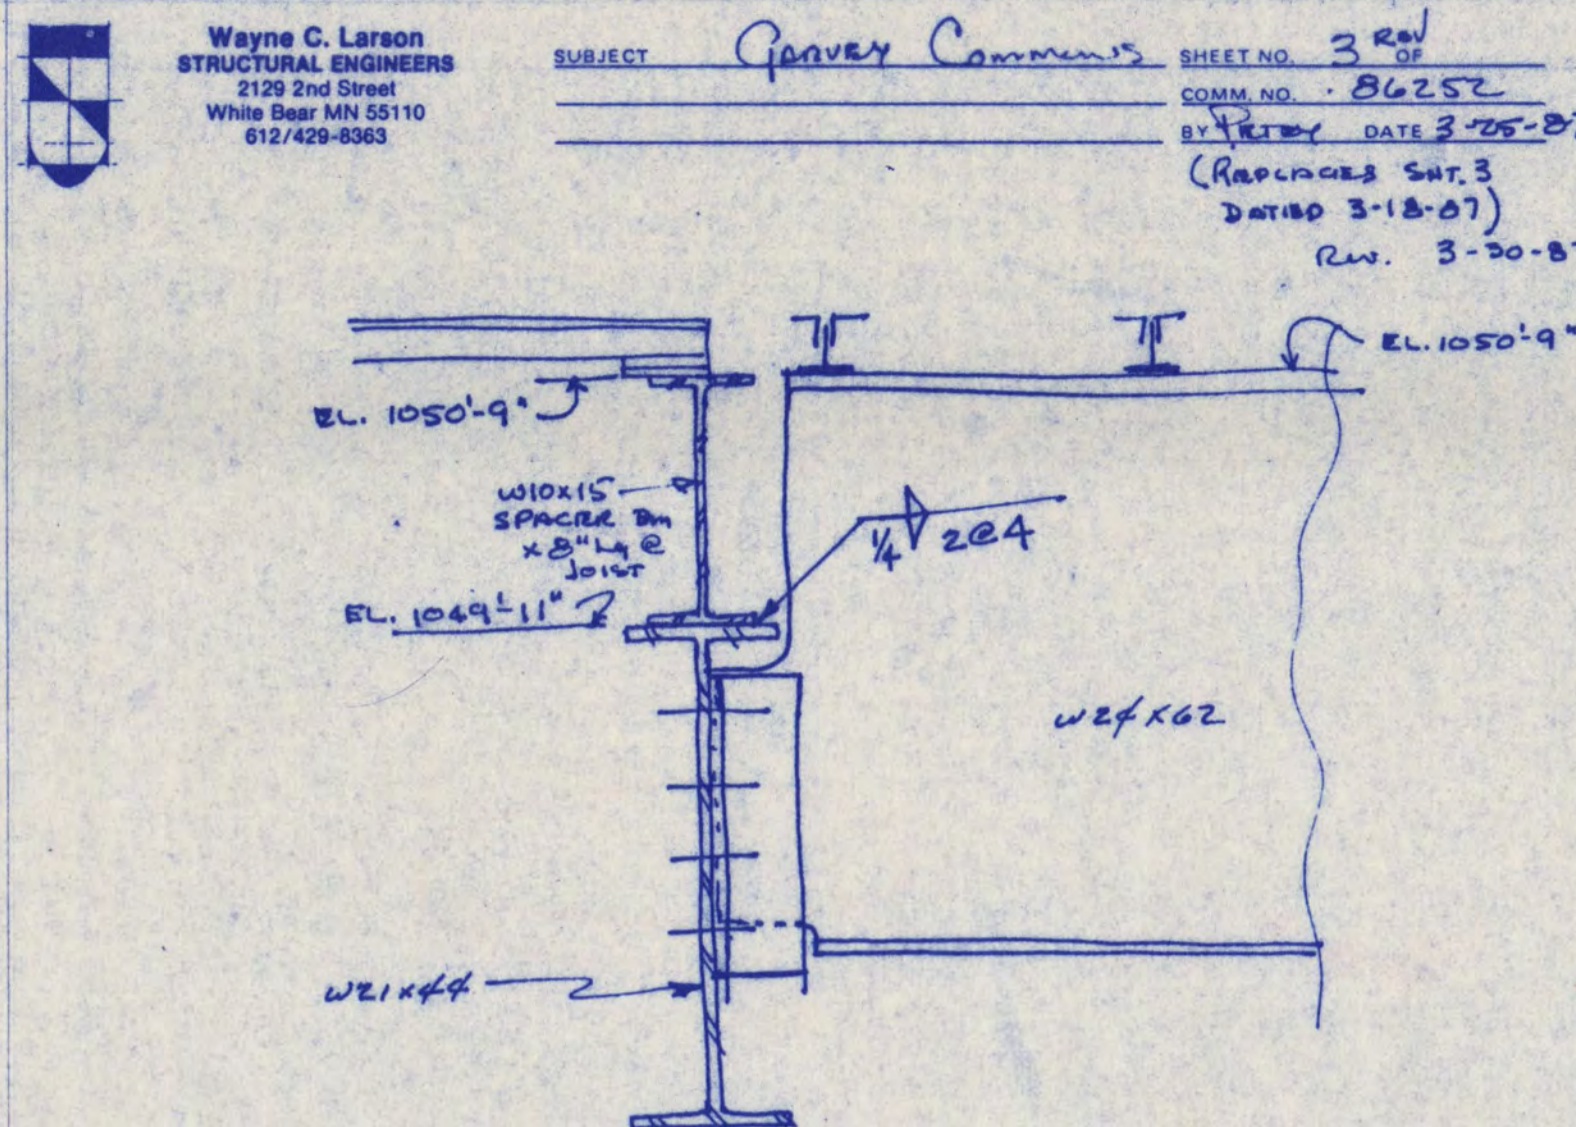 Wayne C. Larson
STRUCTURAL ENGINEERS
2129 2nd Street
White Bear MN 55110
612/429-8363
SUBJECT Garvey Commons
SHEET NO. 3 REV OF
COMM. NO. 86252
BY DATE 3-25-87
(REPLACES SHT. 3
DATED 3-18-87)
Rev. 3-30-8
EL. 1050'-9"
EL. 1050'-9"
W10x15
SPACER Bm
x 8" Lg @
JOIST
1/4 2@4
EL. 1049'-11"
W24x62
W21x44